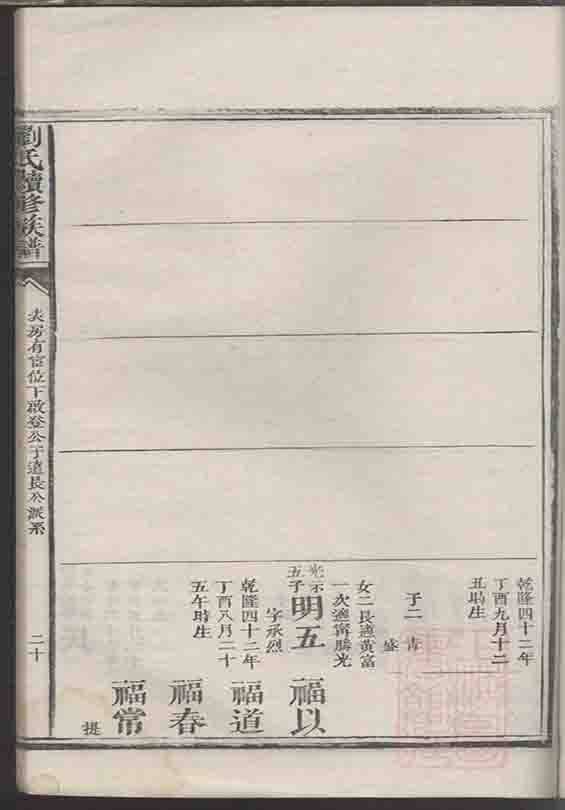 乾隆四十二年
丁酉九月十二
丑時生
子二 肯
盛
女二長適黃富
一次適甯勝光
光示
五子
明五
福以
字承烈
乾隆四十二年
丁酉八月二十
五午時生
福道
福春
福常
提
劉氏續修族譜
房有位下啟登公子遠長公派系
二十